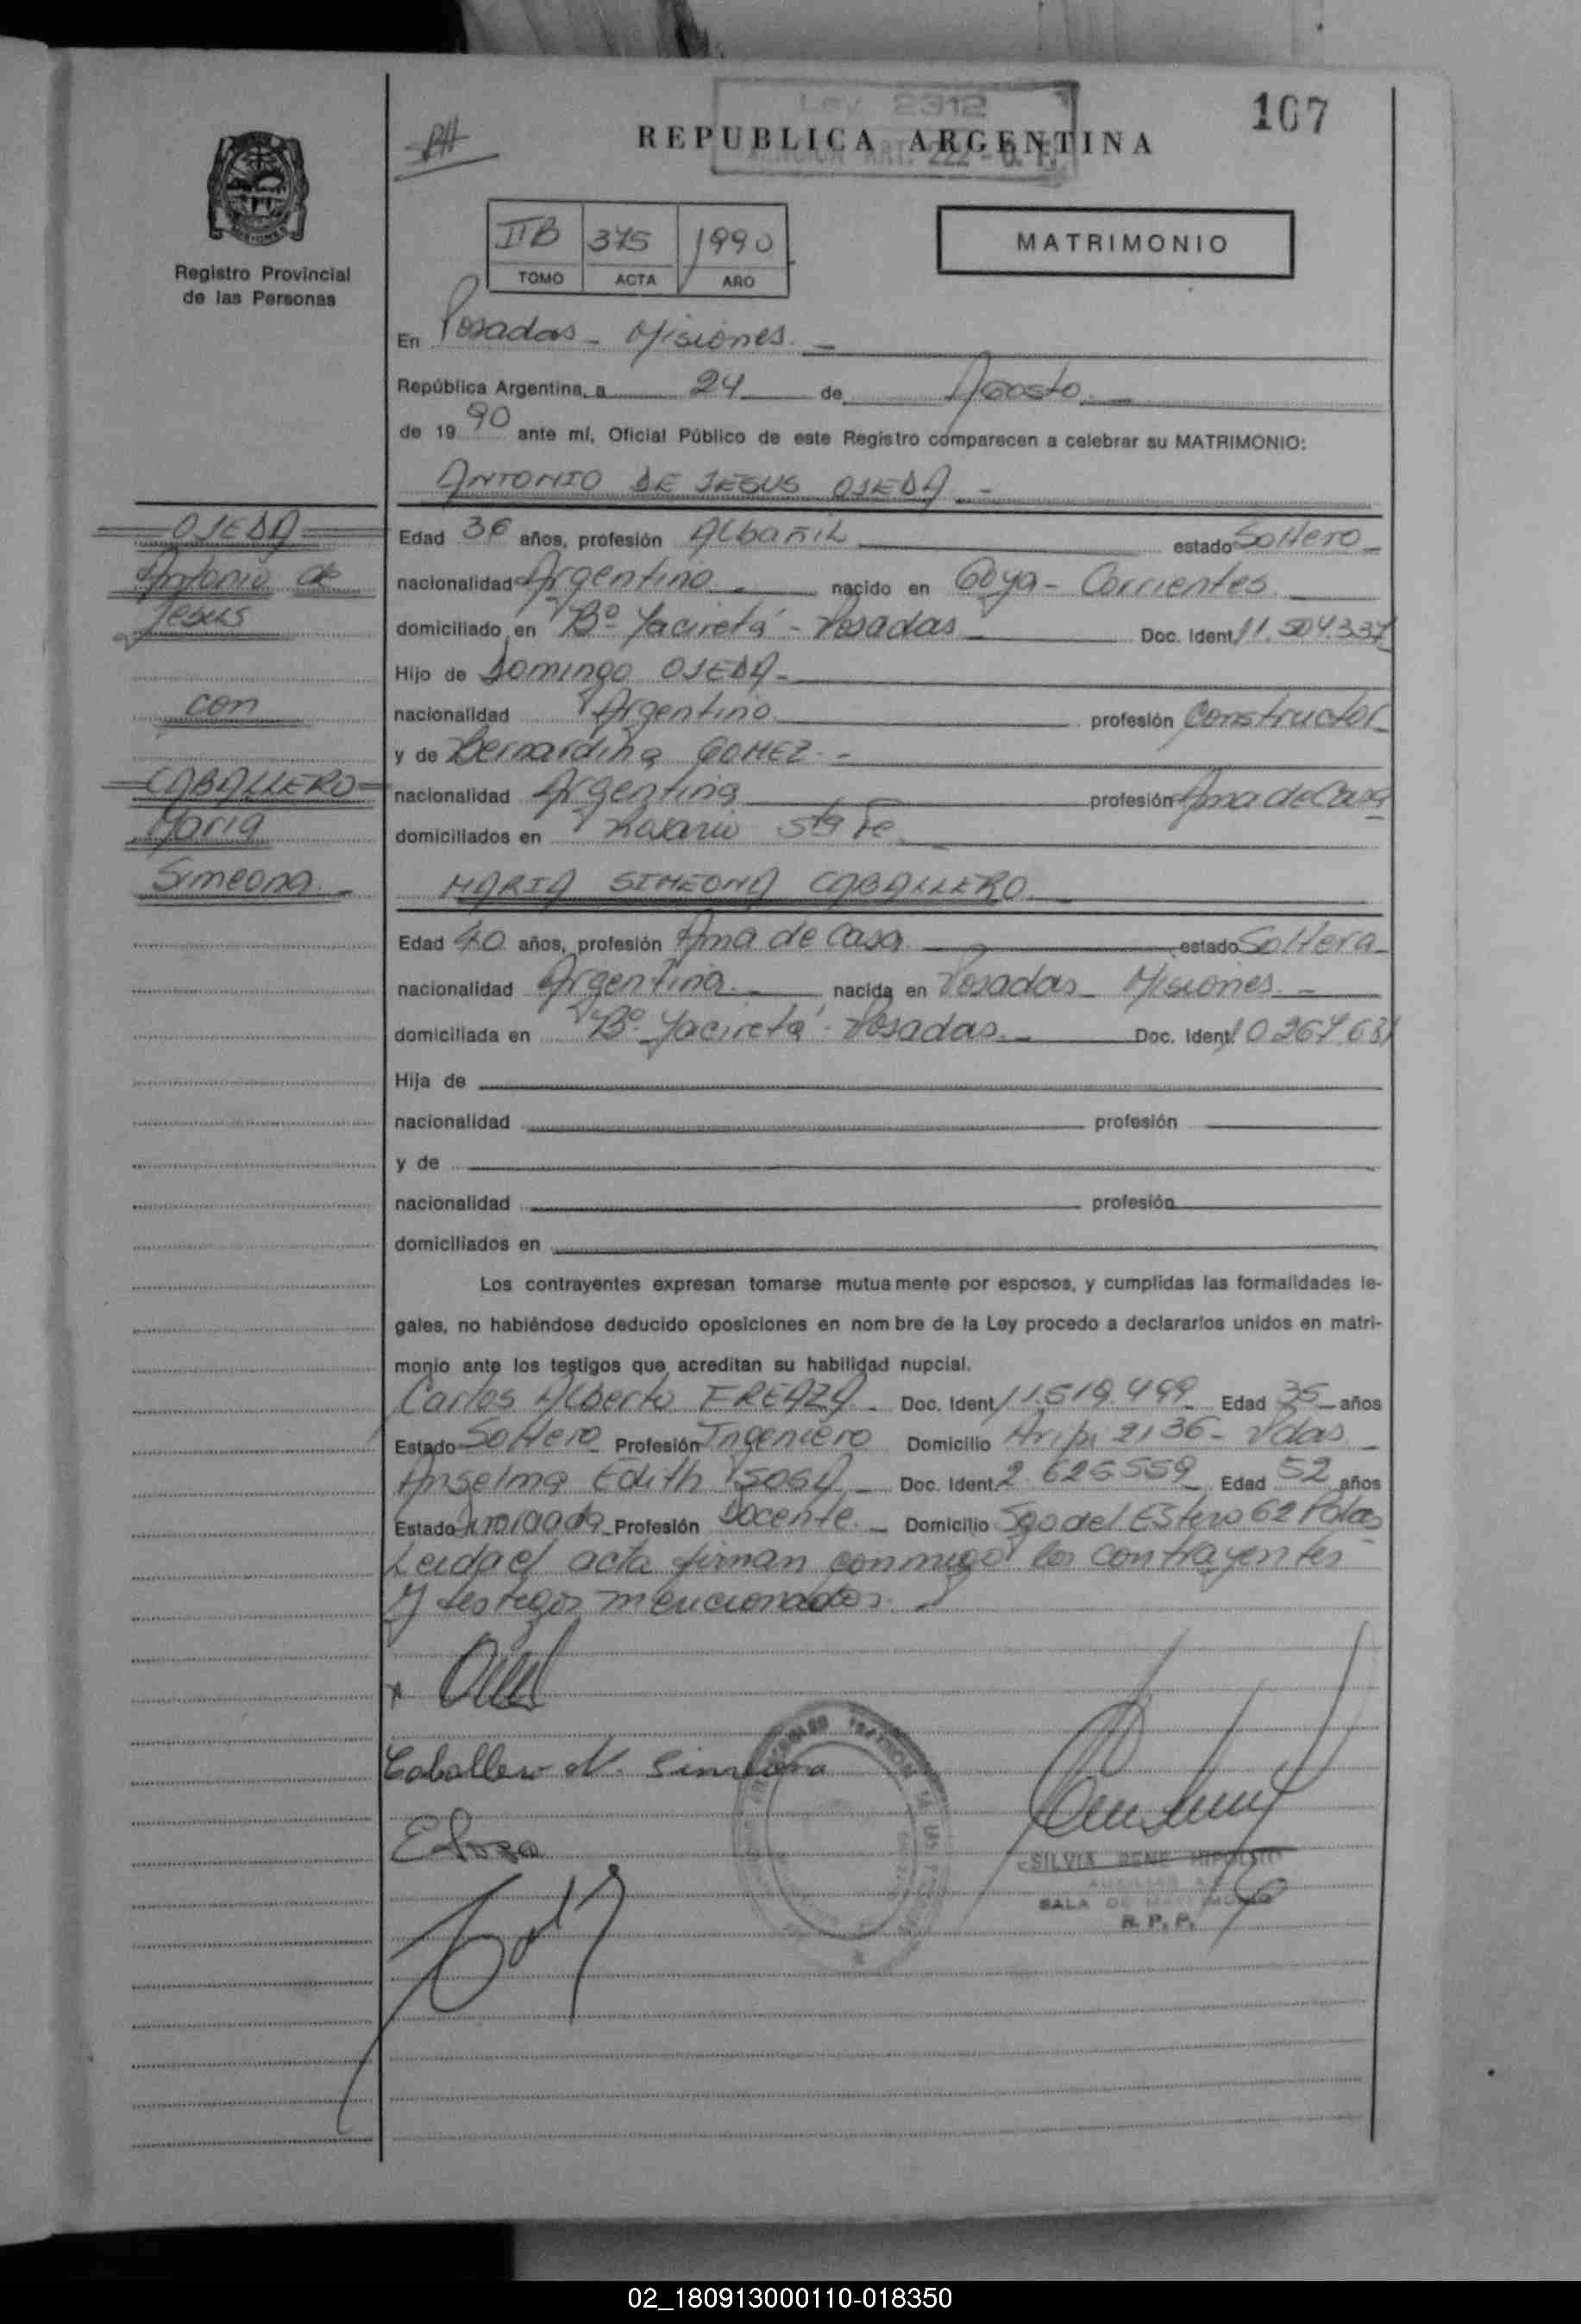 Ley 2312
REPUBLICA ARGENTINA
107
Registro Provincial
de las Personas
IIB 375 1990
TOMO ACTA AÑO
MATRIMONIO
En Posadas - Misiones. -
República Argentina, a 24 de Agosto. -
de 19 90 ante mí, Oficial Público de este Registro comparecen a celebrar su MATRIMONIO:
ANTONIO DE JESUS OJEDA. -
OJEDA
Antonio de
Jesus
con
CABALLERO
Maria
Simeona. -
Edad 36 años, profesión Albañil estado Soltero -
nacionalidad Argentino. - nacido en Goya - Corrientes
domiciliado en Bº Yacireta - Posadas - Doc. Ident. 11.504.337
Hijo de Domingo OJEDA -
nacionalidad Argentino profesión Constructor
y de Bernardina GOMEZ. -
nacionalidad Argentina profesión Ama de Casa
domiciliados en Rosario Sta Fe -
MARIA SIMEONA CABALLERO -
Edad 40 años, profesión Ama de Casa estado Soltera -
nacionalidad Argentina. - nacida en Posadas - Misiones. -
domiciliada en Bº Yacireta - Posadas. - Doc. Ident. 10.267.631
Hija de
nacionalidad profesión
y de
nacionalidad profesión
domiciliados en
Los contrayentes expresan tomarse mutuamente por esposos, y cumplidas las formalidades le-
gales, no habiéndose deducido oposiciones en nombre de la Ley procedo a declararlos unidos en matri-
monio ante los testigos que acreditan su habilidad nupcial.
Carlos Alberto EREAZA - Doc. Ident 11.519.499 Edad 35 años
Estado Soltero Profesión Ingeniero Domicilio 2136 - Pdas -
Anselma Edith SOSA - Doc. Ident. 2.625559 Edad 52 años
Estado Divorciada Profesión Docente. - Domicilio Sgo del Estero 62 Pdas
Leida el acta firman conmigo los contrayentes
y testigos mencionados. -
Caballero M. Simeona
ESosa
SILVIA RENE HIPOLITO
SALA DE MATRIMONIO
R. P. P.
02_180913000110-018350